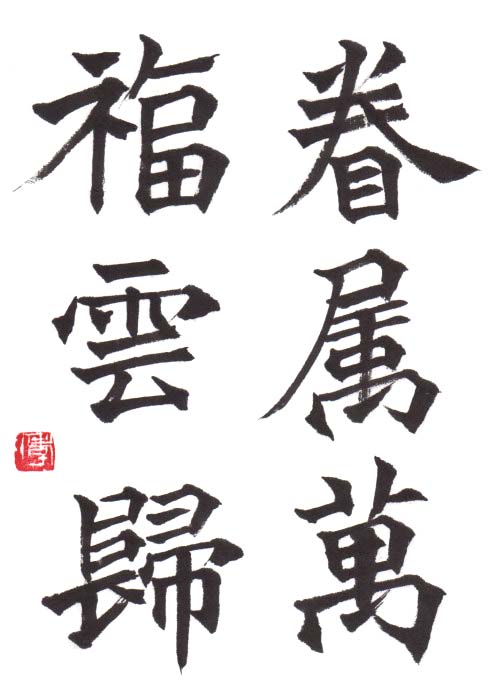 眷属萬
福雲歸